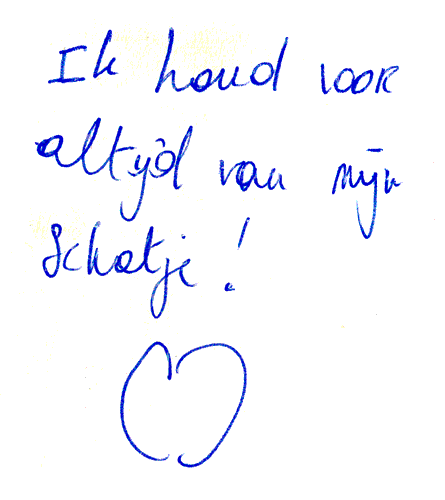 Ik houd voor
altijd van mijn
schatje!